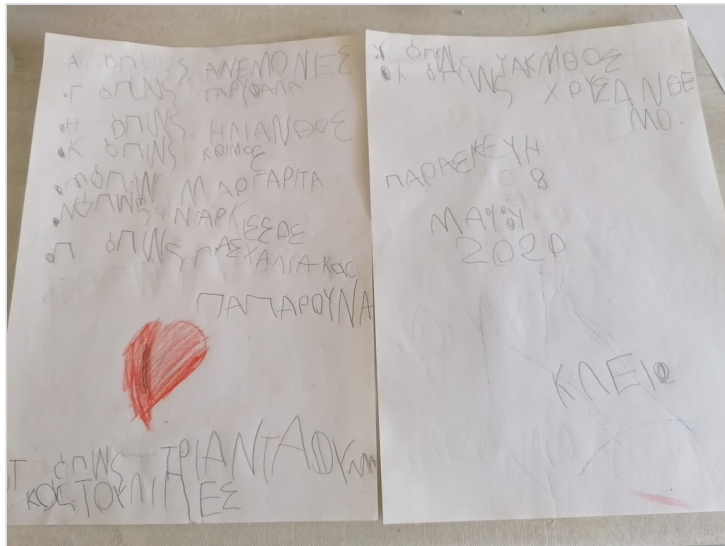 Α όπως ΑΝΕΜΟΝΕΣ
Γ όπως ΓΑΡΥΦΑΛΑ
Η όπως ΗΛΙΑΝΘΟΣ
Κ όπως
Μ όπως ΜΑΡΓΑΡΙΤΑ
Ν όπως ΝΑΡΚΙΣΣΟΣ
Π όπως ΠΑΣΧΑΛΙΑ ΚΑΙ
ΠΑΠΑΡΟΥΝΑ
Τ όπως ΤΡΙΑΝΤΑΦΥΛΛΑ
ΚΑΙ ΤΟΥΛΙΠΕΣ
Υ όπως ΥΑΚΙΝΘΟΣ
Χ όπως ΧΡΥΣΑΝΘΕ
ΜΟ.
ΠΑΡΑΣΚΕΥΗ
8
ΜΑΪΟΥ
2020
ΚΛΕΙΩ